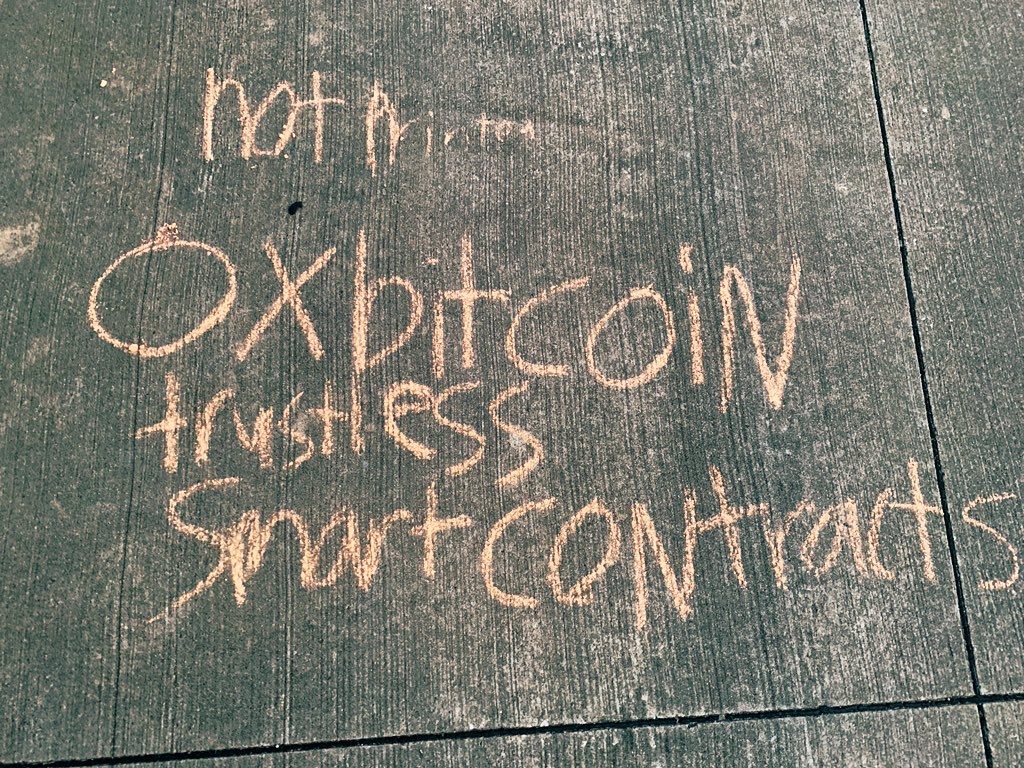 not printed
0xbitcoin
trustless
Smart contracts